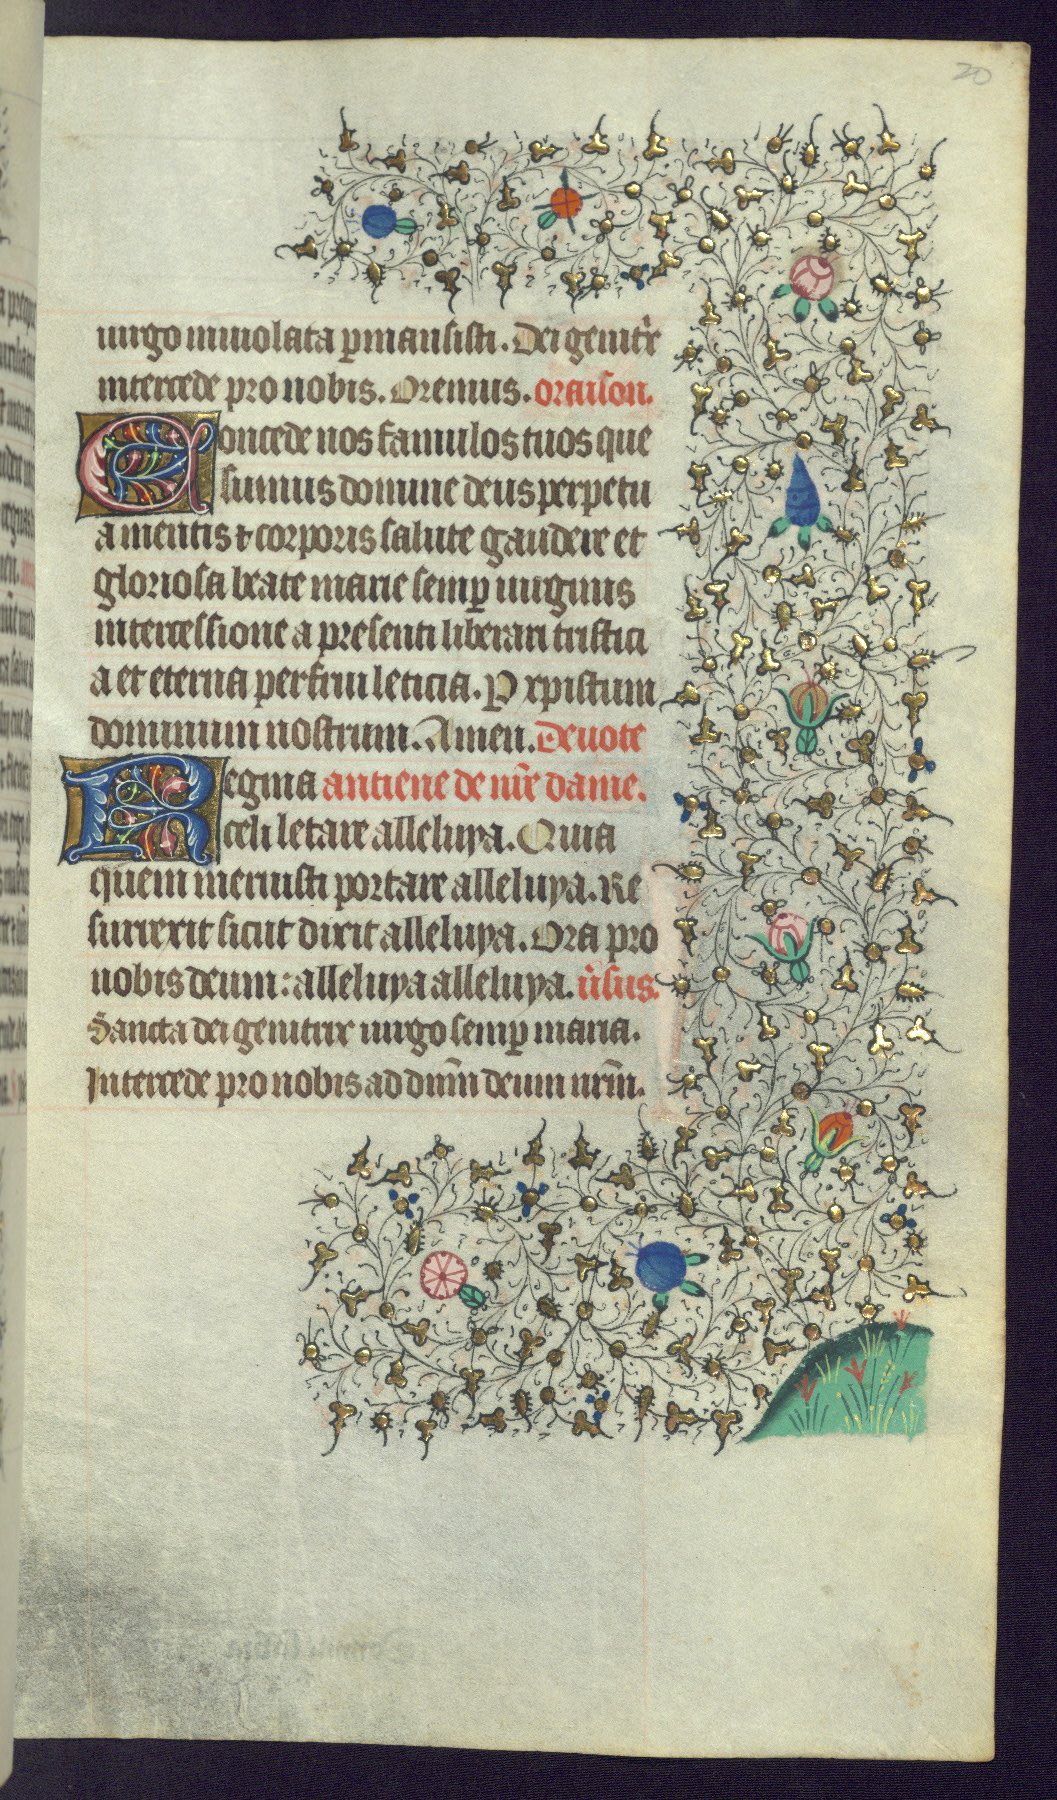 20
uirgo inuiolata pmansisti. Dei genitr
intercede pro nobis. Oremus. oraison.
Concede nos famulos tuos que
sumus domine deus perpetu
a mentis & corporis salute gaudere et
gloriosa beate marie semp uirginis
intercessione a presenti liberari tristici
a et eterna perfrui leticia. P xpistum
dominum nostrum. Amen. Deuote
Regina antiene de nre dame.
celi letare alleluya. Quia
quem meruisti portare alleluya. Re
surrexit sicut dixit alleluya. Ora pro
nobis deum: alleluya alleluya. usus.
Sancta dei genitrix uirgo semp maria.
Intercede pro nobis ad dnm deum nrm.